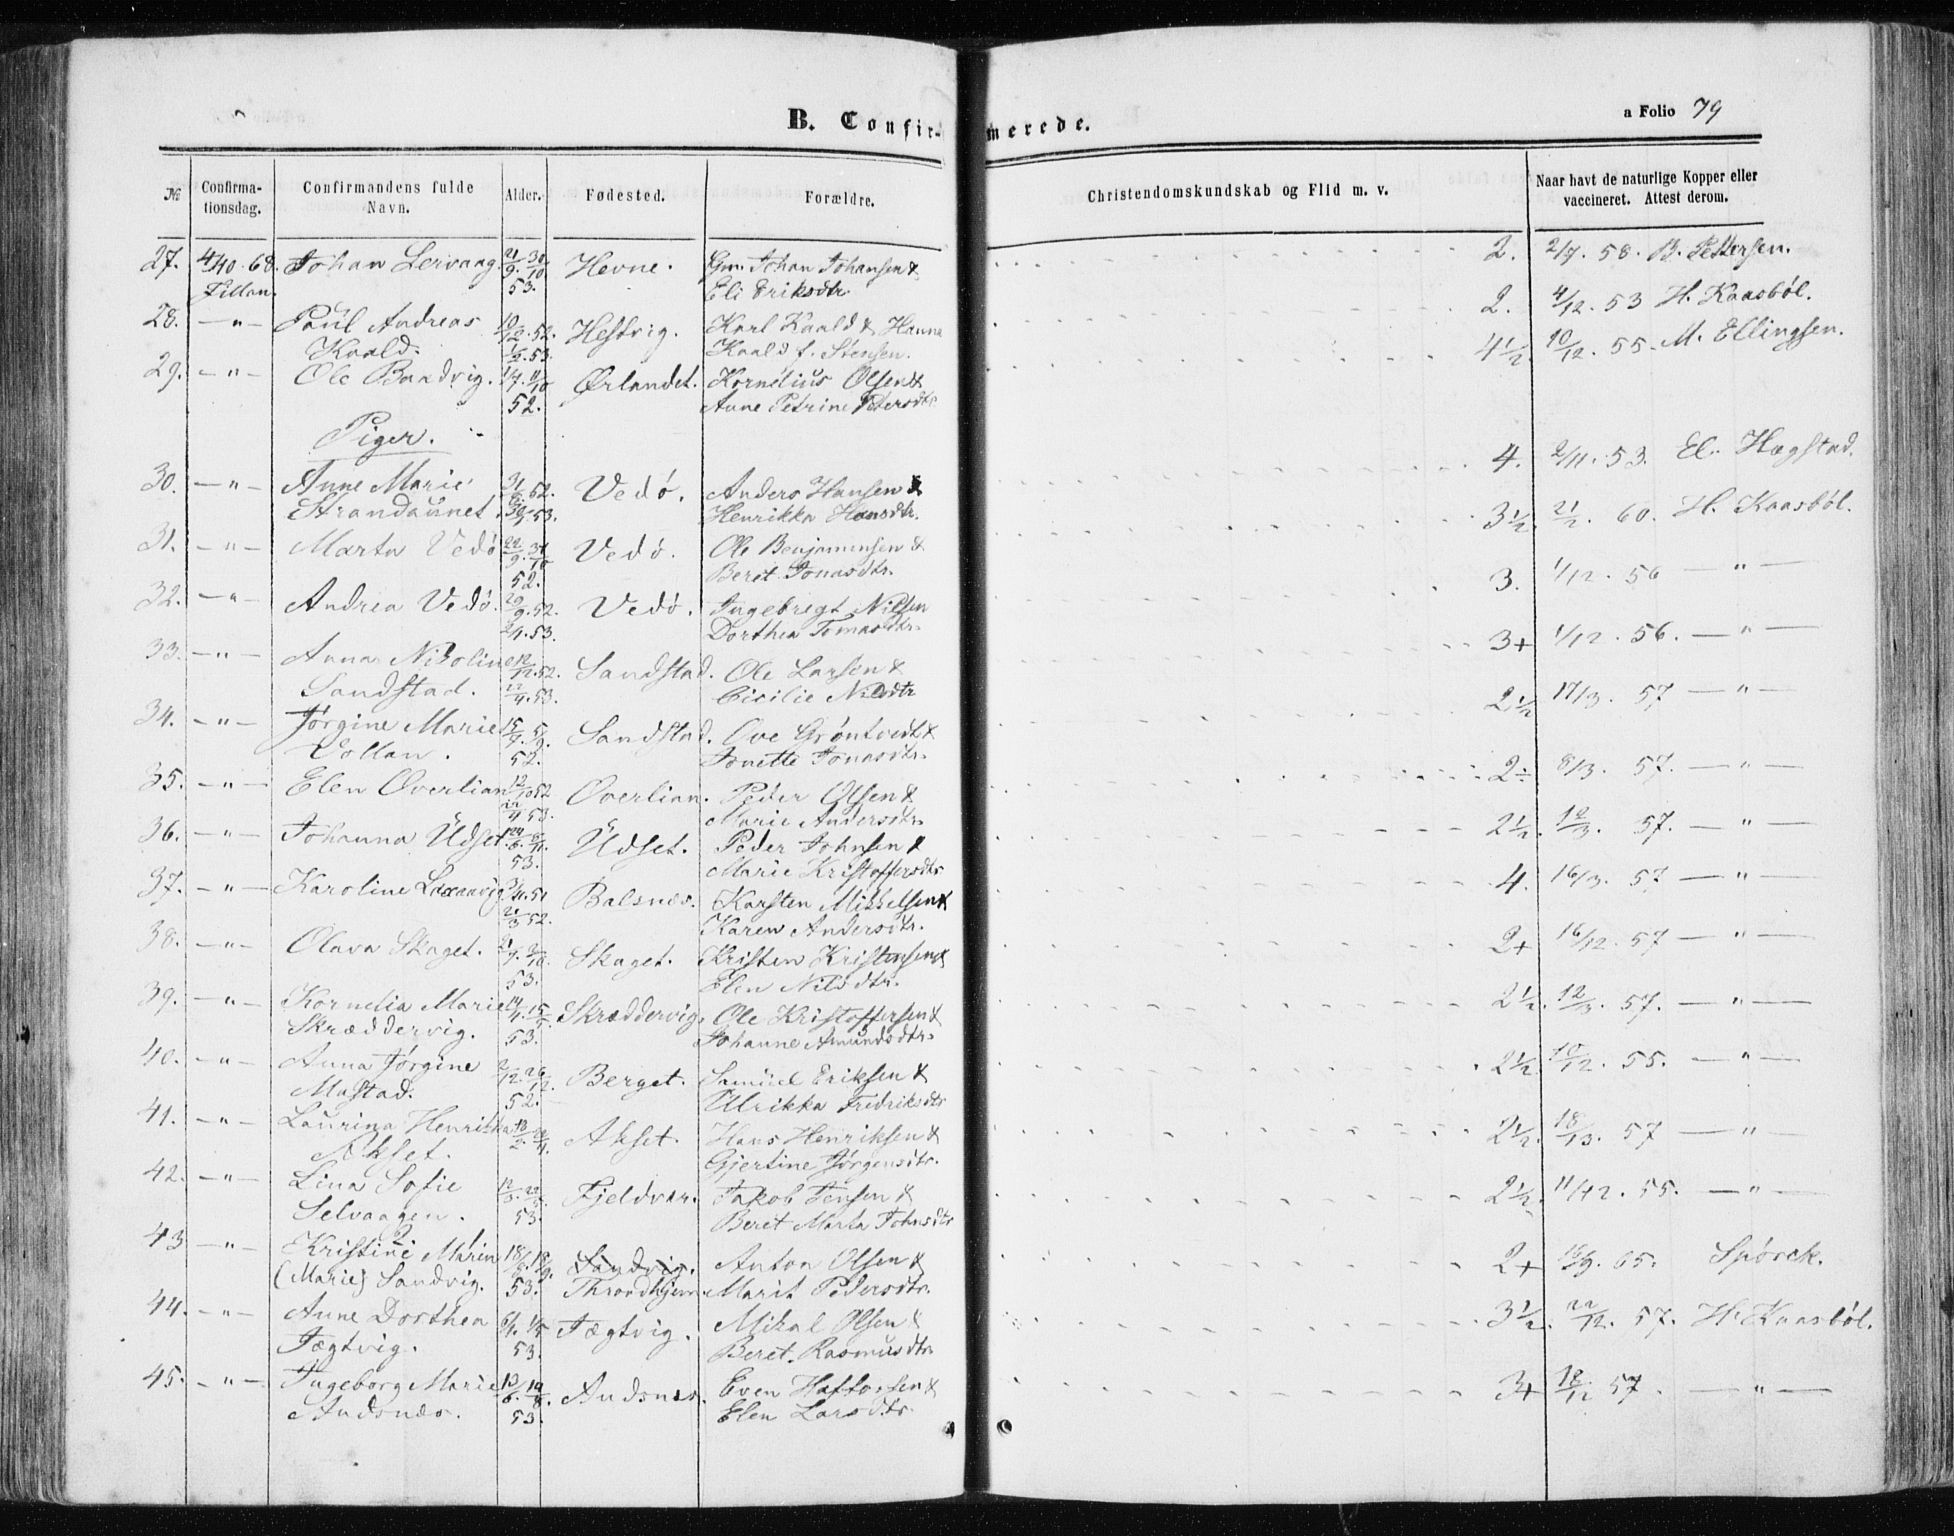 B. Confir-
merede.
a Folio 79
№
Confirma-
tionsdag.
Confirmandens fulde
Navn.
Alder.
Fødested.
Forældre.
Christendomskundskab og Flid m. v.
Naar havt de naturlige Kopper eller
vaccineret. Attest derom.
27. 4/10. 68. Johan Lervaag 21/9. 30/10 Hevne. Gm. Johan Johansen & 2. 2/7. 58. B. Pettersen.
Fillan. 53. Eli Eriksdtr.
28. —"— Paul Andreas 52. Hestvig. Karl Kaald & Hanna 2. 4/12. 53 H. Kaasbøl.
Kaald. 53. Kaald f. Stensen.
29. —"— Ole Bandvig. 52. Ørlandet. Kornelius Olsen & 4½ 10/12. 55. M. Ellingsen.
Anne Petrine Petersdtr.
Piger.
30. —"— Anne Marie 52. Vedø. Anders Hansen & 4. 2/11. 53. El. Hægstad.
Strandaunet. 53. Henrikka Hansdtr.
31. —"— Marta Vedø 22/9. 31/10 Vedø. Ole Benjaminsen & 3½ 21/2. 60. H. Kaasbøl.
52. Beret Jonasdtr.
32. —"— Andrea Vedø. 20/9. 52. Vedø. Ingebregt Nilsen 3. 1/12. 56 —"—
53. Dorthea Tomasdtr.
33. —"— Anna Nikoline 12/12. 52. Sandstad. Ole Larsen & 3+ 1/12. 56. —"—
Sandstad. 22/4. 53. Cicilie Nilsdtr
34. —"— Jørgine Marie 15/9. 5/9. Sandstad. Ove Grøntvedt & 2½ 17/3. 57 —"—
Vollan. 52. Jonette Jonasdtr.
35. —"— Elen Overlian 12/10 52 Overlian. Peder Olsen & 2÷ 8/3. 57. —"—
22/4 53. Marie Andersdtr.
36. —"— Johanna Udset. 24/6. Udset. Peder Johnsen & 2½. 12/3. 57. —"—
53. Marie Kristoffersdtr
37. —"— Karoline 51 Balsnes. Karsten Mikkelsen & 4. 16/3. 57 —"—
21/3 52. Karen Andersdtr.
38. —"— Olava Skaget. Skaget. Kristen Kristensen & 2+ 16/12. 57 —"—
53. Elen Nilsdtr.
39. —"— Kornelia Marie 14/4. 15/5. Skræddervig. Ole Kristoffersen & 2½. 12/3. 57. —"—
Skræddervig. 53. Johanne Amundsdtr.
40. —"— Anna Jørgine 2/12. 26/12. Berget. Samuel Eriksen & 2½. 10/12. 55. —"—
Mastad. 52. Ulrikka Fredriksdtr
41. —"— Laurina Henrikka Akset. Hans Henriksen & 2½. 18/13. 57 —"—
Akset. Gjertine Jørgensdtr.
42. —"— Lina Sofie Fjeldvær. Jakob Jensen & 2½. 11/12. 55. —"—
Selvaagen. 53. Beret Marta Johnsdtr
43 —"— Kristine Marin 18/8. 18/9. Sandvig. Anton Olsen & 2+ 65. Spørck.
(Marie) Sandvig. 53. Throndhjem. Marit Pedersdtr.
44. —"— Anne Dorthea 1/5 Tægtvig. Mikal Olsen & 3½. 22/12. 57. H. Kaasbøl.
Tægtvig. 53. Beret Rasmusdtr.
45. —"— Ingeborg Marie 13/6. 19/8. Andsnes. Even Haftorsen & 3+ 18/12 57. —"—
Andsnæs. 53. Elen Larsdtr.